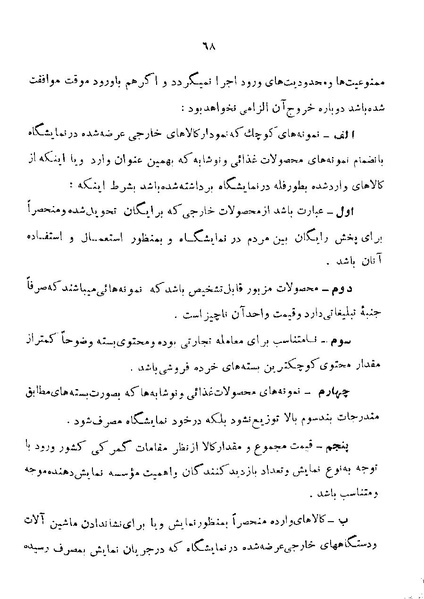 ٦٨
ممنوعیت‌ها و محدودیت‌های ورود اجرا نمیگردد و اگر هم باورود موقت موافقت
شده‌باشد دوباره خروج آن الزامی نخواهد بود :
الف - نمونه‌های کوچك که نمودار کالاهای خارجی عرضه‌شده در نمایشگاه
بانضمام نمونه‌های محصولات غذائی و نوشابه که بهمین عنوان وارد و یا اینکه از
کالاهای وارد شده بطور فله در نمایشگاه برداشته‌شده‌باشد بشرط اینکه :
اول - عبارت باشد از محصولات خارجی که برایگان تحویل‌شده و منحصراً
برای پخش رایگان بین مردم در نمایشگاه و بمنظور استعمال و استفاده
آنان باشد .
دوم - محصولات مزبور قابل تشخیص باشد که نمونه‌هائی میباشند که صرفاً
جنبهٔ تبلیغاتی دارد و قیمت واحد آن ناچیز است .
سوم - نامتناسب برای معامله تجارتی بوده و محتوی بسته وضوحاً کمتر از
مقدار محتوی کوچکترین بسته‌های خرده فروشی باشد .
چهارم - نمونه‌های محصولات غذائی و نوشابه‌ها که بصورت بسته‌های مطابق
مندرجات بند سوم بالا توزیع نشود بلکه در خود نمایشگاه مصرف شود .
پنجم - قیمت مجموع و مقدار کالا از نظر مقامات گمرکی کشور ورود با
توجه به نوع نمایش و تعداد بازدید کنندگان و اهمیت مؤسسه نمایش‌دهنده موجه
و متناسب باشد .
ب - کالاهای وارده منحصراً بمنظور نمایش و یا برای نشاندادن ماشین آلات
و دستگاههای خارجی عرضه‌شده در نمایشگاه که در جریان نمایش بمصرف رسیده